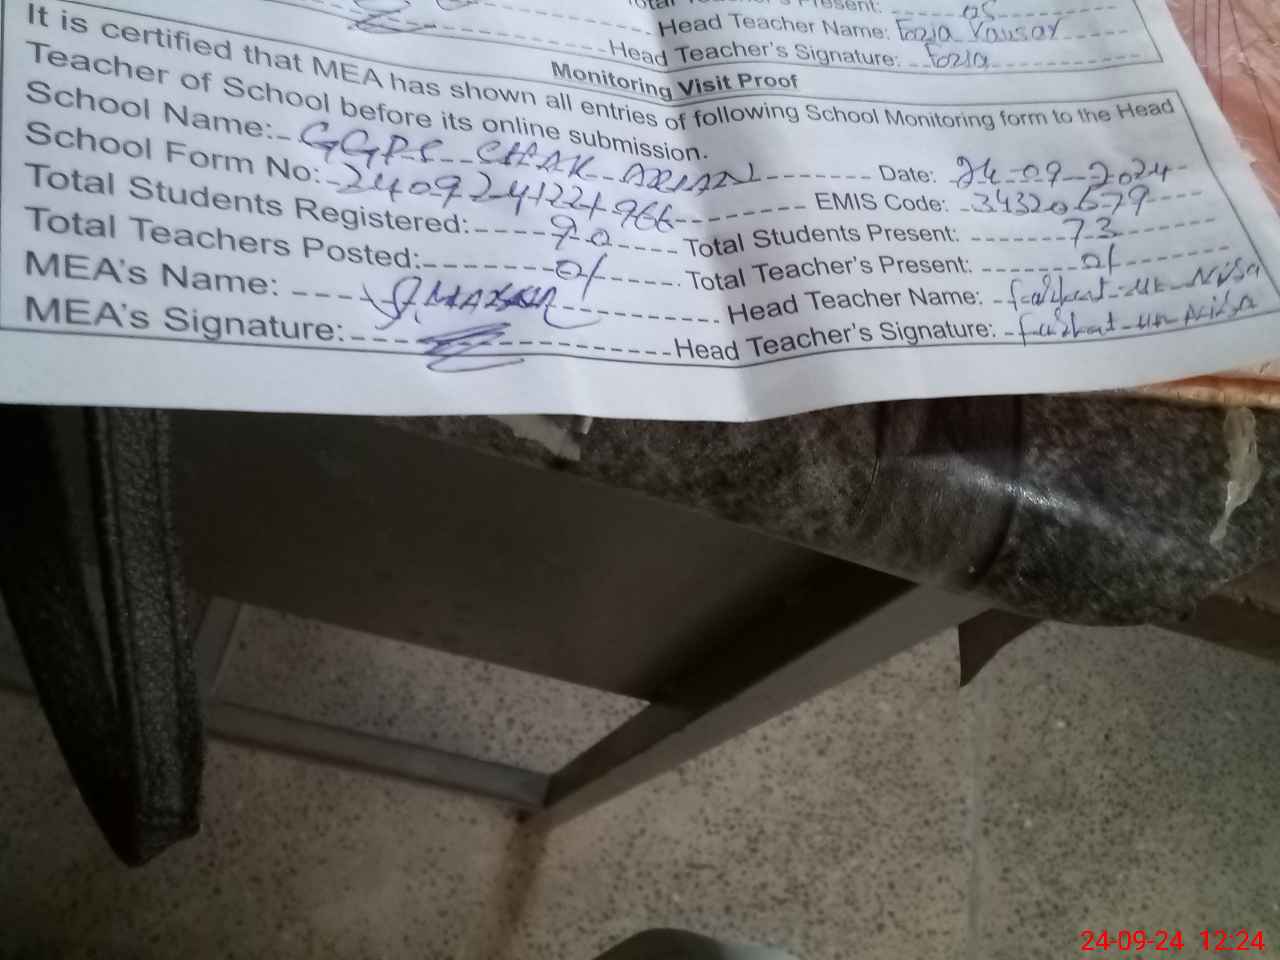 Total Teacher's Present: 05
Head Teacher Name: Fozia Kausar
Head Teacher's Signature: Fozia
Monitoring Visit Proof
It is certified that MEA has shown all entries of following School Monitoring form to the Head
Teacher of School before its online submission.
School Name: GGPS CHAK ARIAN Date: 24-09-2024
School Form No: EMIS Code: 34320679
Total Students Registered: 90 Total Students Present: 73
Total Teachers Posted: 01 Total Teacher's Present: 01
MEA's Name: Head Teacher Name: Farhat-un-Nisa
MEA's Signature: Head Teacher's Signature: Farhat-un-Nisa
24-09-24 12:24